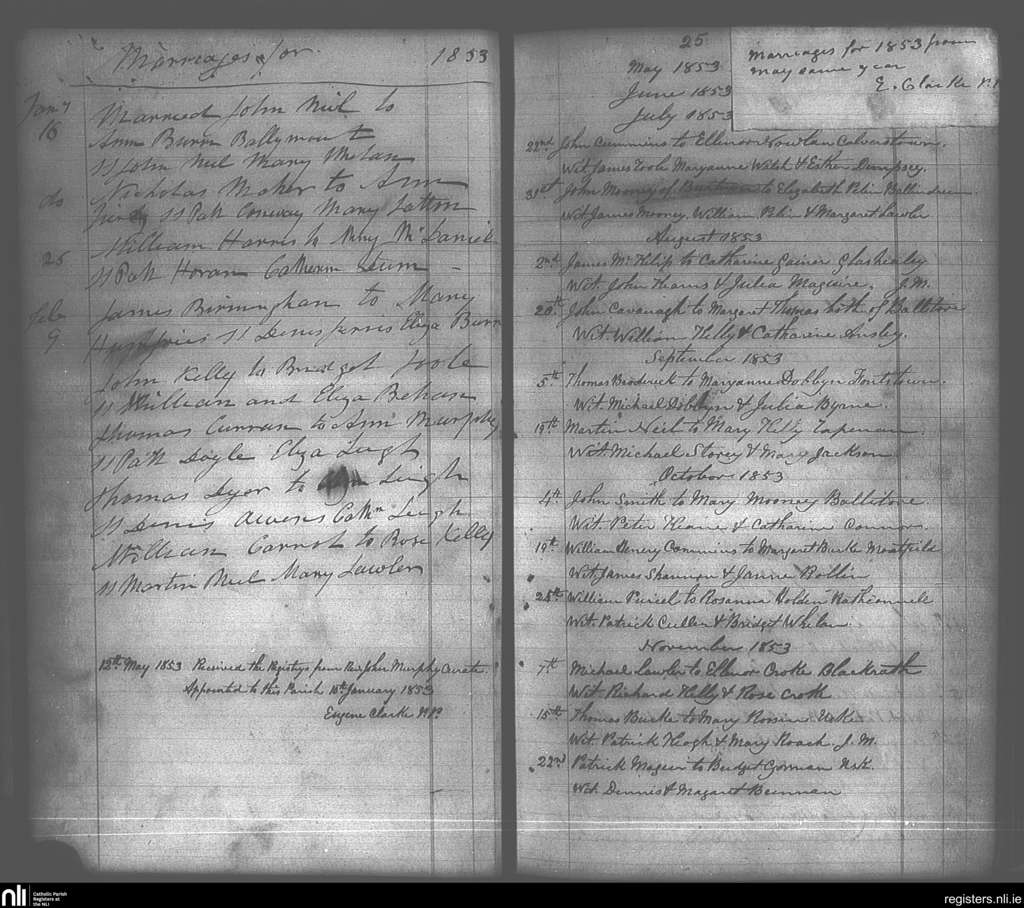 Marriages for 1853
Jan 7
16 Married John Neil to
Ann Burn Ballymount
SS John Neil Mary
do Nicholas Maher to Ann
SS Patk Conway Mary Latton
William Harris to Mary McDaniel
25 SS Patk Horan Catherin
Feb 9 James Birmingham to Mary
Humfries SS Denis Eliza Burn
John Kelly to Bridget Toole
SS William and Eliza Behan
Thomas Curran to Ann Murphy
SS Patk Doyle Eliza Leigh
Thomas Dyer to Leigh
SS Denis Cathn Leigh
William to Rose Kelly
SS Martin Neil Mary Lawler
12th May 1853 Received the Registrys from Revd John Murphy Curate
Appointed to this Parish 15th January 1853
Eugene Clarke P.P.
25
May 1853
June 1853
July 1853
Marriages for 1853 from
May same year
E. Clarke P.P
22nd John Cummins to Ellinor Nowlan Calverstown.
Wit. James Toole Maryanne Walsh & Esther Dempsey.
31st John Mooney of to Elizabeth
Wit James Mooney, William & Margaret Lawler
August 1853
2nd James McKilip to Catharine Gainor Glashealy
Wit. John Kearns & Julia Maguire. J.M.
20th John Cavanagh to Margaret Thomas both of Ballitore
Wit. William Kelly & Catharine Ansley.
September 1853
5th Thomas Broderick to Maryanne Dobbyn Fontstown.
Wit. Michael Dobbyn & Julia Byrne.
19th Martin Neil to Mary Kelly
Wit. Michael Storey & Mary Jackson
October 1853
4th John Smith to Mary Mooney Ballitore.
Wit. Peter Keane & Catharine Connors.
19th William Henery Commins to Margaret Burke Moatfield
Wit. James Shannon & Janne Bollin
25th William Purcel to Rosanna Holden
Wit. Patrick Cullen & Bridget Whelan.
November 1853
7th Michael Lawler to Ellenor Croke Blackrath
Wit. Richard Kelly & Rose Crok
15th Thomas Burke to Mary
Wit. Patrick Keogh & Mary Roach J.M.
22nd Patrick Mageer to Bridget Gorman
Wit. Dennis & Magaret Brennan
nli
Catholic Parish
Registers at
the NLI
registers.nli.ie